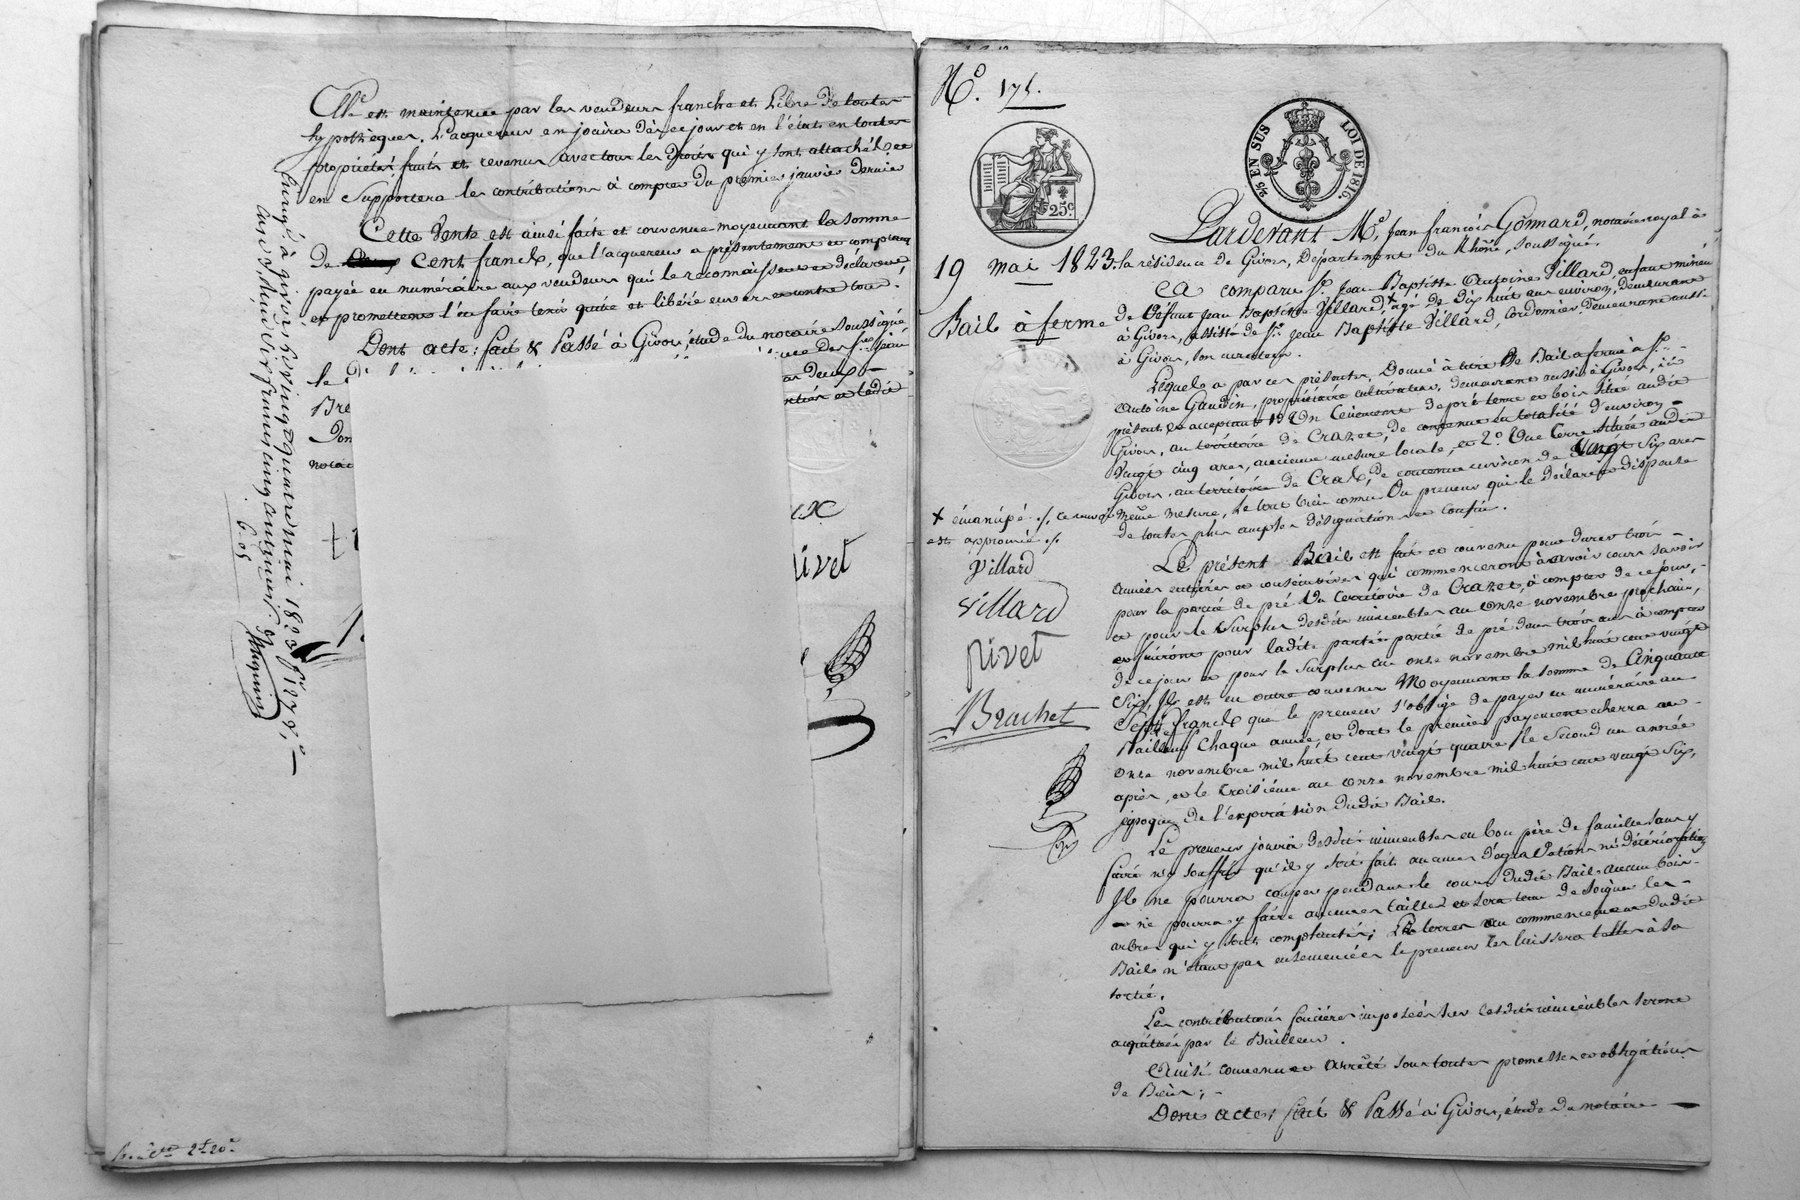 Elle est maintenue par les vendeurs franche et Libre de toutes
hypothèques. L'acquereur en jouira dès ce jour et en l'état en toutes
propriétés, fruits et revenus avec tous les droits qui y sont attachés et
en Supportera les contributions à compter du premier janvier dernier
Cette Vente est ainsi faite et convenue moyennant la somme
de cent francs, que l'acquereur a présentement et comptant
payée en numéraire aux vendeurs qui le reconnaissent et déclarent
et promettent l'en faire tenir quite et libéré envers et contre tous.
Dont acte; fait & Passé à Givors, étude du notaire soussigné
le
Bre
Don
notai
ex
rivet
Enregé à Givors le vingt quatre mai 1823 f° 127 v°
6.05
2f 20c
N° 175.
25c
25 EN SUS LOI DE 1816.
19 mai 1823.
Bail à ferme
Pardevant Me Jean françois Gonnard, notaire royal à
la résidence de Givors, Département du Rhône, soussigné.
Ea comparu Sr Jean Baptiste Antoine Villard, enfant mineur
de Défunt Jean Baptiste Villard, + agé de dix huit ans environ, demeurant
à Givors, assisté de Sr Jean Baptiste Villard, Cordonnier, demeurant aussi
à Givors, son curateur.
Lequel a par ces présentes, Donné à titre de Bail a ferme à Sr
Antoine Gaudin, propriétaire cultivateur, demeurant aussi à Givors, ici
présent et acceptant 1° Un Tènement de pré terre et bois situé audit
Givors, au territoire de Crazet, de contenue en totalité d'environ
Vingt cinq ares, ancienne mesure locale, et 2° Une terre située audit
Givors, au territoire de Crax, de contenue environ de Vingt Six ares
même mesure, le tout bien connu Du preneur qui le déclare et dispense
de toutes plus amples désignation et confin.
+ émancipé ./. ce renvoi
est approuvé ./.
Villard
Villard
rivet
Brachet
Le présent Bail est fait et convenu pour durer trois
années entières et consécutives qui commenceront à avoir cours savoir
pour la partie de pré Du territoire de Crazet, à compter de ce jour,
et pour le Surplus desdits immeubles au onze novembre prochain,
et finiront pour ladite partie partie de pré dans trois ans à compter
de ce jour et pour le Surplus au onze novembre mil huit cent vingt
Six, Il est en outre convenu Moyennant la somme de Cinquante
Sept francs que le preneur s'oblige de payer en numéraire au
Bailleur Chaque année, et dont le premier payement echerra au
onze novembre mil huit cent vingt quatre, le Second un année
après, et le troisième au onze novembre mil huit cent vingt Six,
époque de l'expiration dudit Bail.
Le preneur jouira desdits immeubles en bon père de famille sans y
faire ni souffrir qu'il y soit fait aucunes dégradations ni détériorations
Il ne pourra couper pendant le cours dudit Bail aucun bois
ne pourra y faire aucunes tailles et sera tenu de soigner les
arbres qui y sont complantés; Les terres au commencement dudit
Bail n'étant pas ensemencées le preneur les laissera telles à sa
sortie.
Les contributions foncières imposées sur lesdits immeubles seront
acquittées par le Bailleur.
Ainsi convenu et arrêté sous toutes promesses et obligations
de Biens;
Dont acte; fait & Passé à Givors, étude du notaire